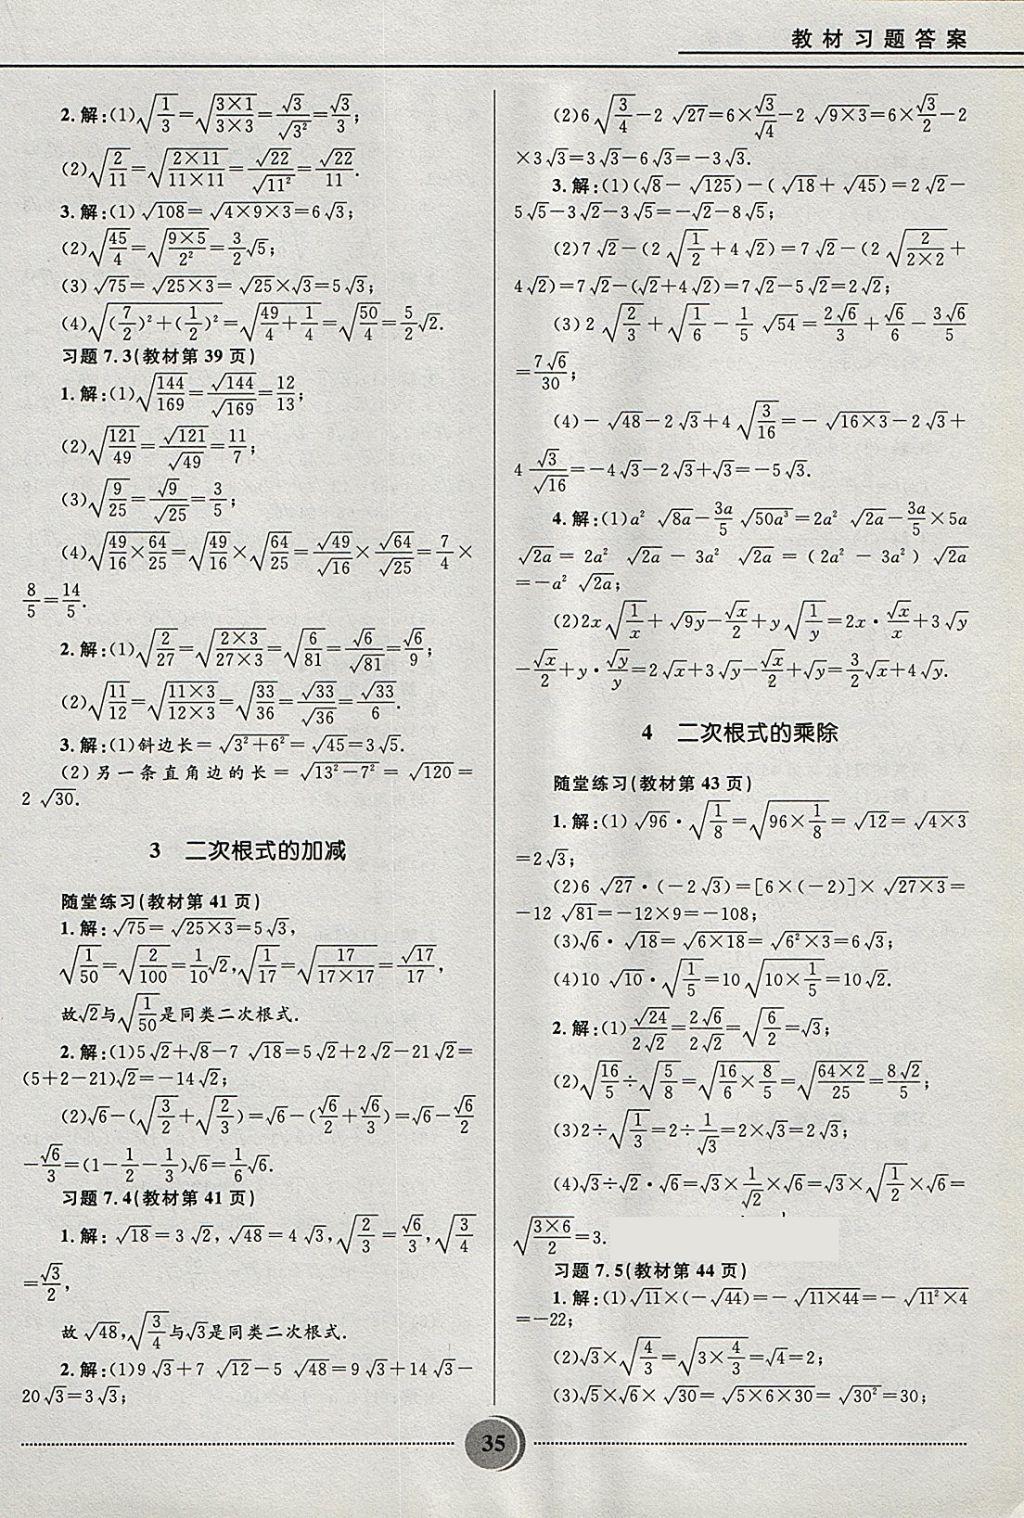 教材习题答案
2.解:(1)√(1/3)=√((3×1)/(3×3))=√3/√(3²)=√3/3;
(2)√(2/11)=√((2×11)/(11×11))=√22/√(11²)=√22/11.
3.解:(1)√108=√(4×9×3)=6√3;
(2)√(45/4)=√((9×5)/2²)=(3/2)√5;
(3)√75=√(25×3)=√25×√3=5√3;
(4)√((7/2)²+(1/2)²)=√(49/4+1/4)=√(50/4)=(5/2)√2.
习题7.3(教材第39页)
1.解:(1)√(144/169)=√144/√169=12/13;
(2)√(121/49)=√121/√49=11/7;
(3)√(9/25)=√9/√25=3/5;
(4)√(49/16×64/25)=√(49/16)×√(64/25)=√49/√16×√64/√25=7/4×
8/5=14/5.
2.解:(1)√(2/27)=√((2×3)/(27×3))=√(6/81)=√6/√81=√6/9;
(2)√(11/12)=√((11×3)/(12×3))=√(33/36)=√33/√36=√33/6.
3.解:(1)斜边长=√(3²+6²)=√45=3√5.
(2)另一条直角边的长=√(13²-7²)=√120=
2√30.
3 二次根式的加减
随堂练习(教材第41页)
1.解:√75=√(25×3)=5√3,
√(1/50)=√(2/100)=(1/10)√2,√(1/17)=√(17/(17×17))=√17/17,
故√2与√(1/50)是同类二次根式.
2.解:(1)5√2+√8-7√18=5√2+2√2-21√2=
(5+2-21)√2=-14√2;
(2)√6-(√(3/2)+√(2/3))=√6-(√6/2+√6/3)=√6-√6/2
-√6/3=(1-1/2-1/3)√6=(1/6)√6.
习题7.4(教材第41页)
1.解:√18=3√2,√48=4√3,√(2/3)=√6/3,√(3/4)
=√3/2,
故√48,√(3/4)与√3是同类二次根式.
2.解:(1)9√3+7√12-5√48=9√3+14√3-
20√3=3√3;
(2)6√(3/4)-2√27=6×√3/√4-2√(9×3)=6×√3/2-2
×3√3=3√3-6√3=-3√3.
3.解:(1)(√8-√125)-(√18+√45)=2√2-
5√5-3√2-3√5=-√2-8√5;
(2)7√2-(2√(1/2)+4√2)=7√2-(2√(2/(2×2))+
4√2)=7√2-(√2+4√2)=7√2-5√2=2√2;
(3)2√(2/3)+√(1/6)-(1/5)√54=2√6/3+√6/6-3√6/5
=7√6/30;
(4)-√48-2√3+4√(3/16)=-√(16×3)-2√3+
4√3/√16=-4√3-2√3+√3=-5√3.
4.解:(1)a²√(8a)-(3a/5)√(50a³)=2a²√(2a)-(3a/5)×5a
√(2a)=2a²√(2a)-3a²√(2a)=(2a²-3a²)√(2a)
=-a²√(2a);
(2)2x√(1/x)+√(9y)-√x/2+y√(1/y)=2x·√x/x+3√y
-√x/2+y·√y/y=2√x+3√y-√x/2+√y=(3/2)√x+4√y.
4 二次根式的乘除
随堂练习(教材第43页)
1.解:(1)√96·√(1/8)=√(96×1/8)=√12=√(4×3)
=2√3;
(2)6√27·(-2√3)=[6×(-2)]×√(27×3)=
-12√81=-12×9=-108;
(3)√6·√18=√(6×18)=√(6²×3)=6√3;
(4)10√10·√(1/5)=10√(10×1/5)=10√2.
2.解:(1)√24/(2√2)=2√6/(2√2)=√(6/2)=√3;
(2)√(16/5)÷√(5/8)=√(16/6×8/5)=√((64×2)/25)=8√2/5;
(3)2÷√(1/3)=2÷1/√3=2×√3=2√3;
(4)√3÷√2·√6=√3×1/√2×√6=√3×√(1/2)×√6=
√((3×6)/2)=3.
习题7.5(教材第44页)
1.解:(1)√11×(-√44)=-√(11×44)=-√(11²×4)
=-22;
(2)√3×√(4/3)=√(3×4/3)=√4=2;
(3)√5×√6×√30=√(5×6×30)=√(30²)=30;
35